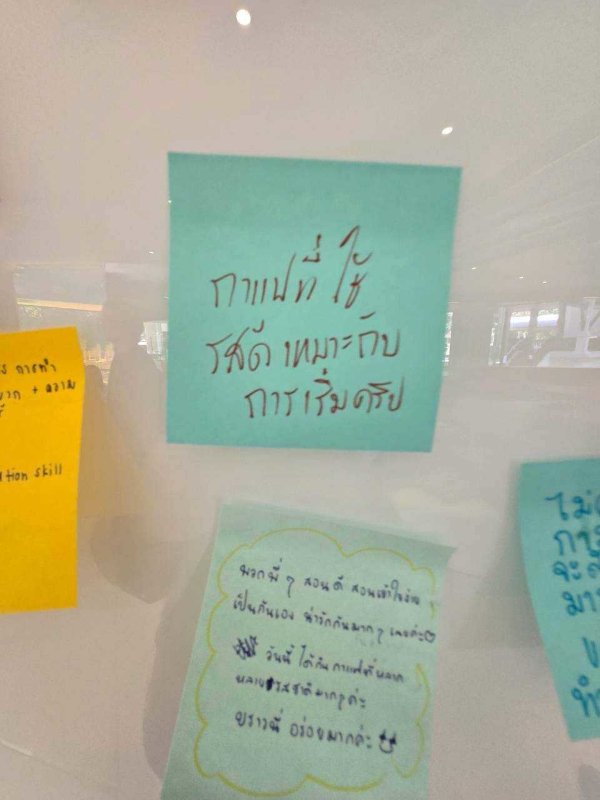 กาแฟที่ ใช้
รสดี เหมาะกับ
การเริ่มดริป
การทำ
+ ความ
skill
พวกพี่ๆ สอนดี สอนเข้าใจง่าย
เป็นกันเอง น่ารักกันมากๆ เลยค่ะ
วันนี้ ได้กินกาแฟที่หลาก
หลายรสชาติมากๆค่ะ
บราวนี่ อร่อยมากค่ะ